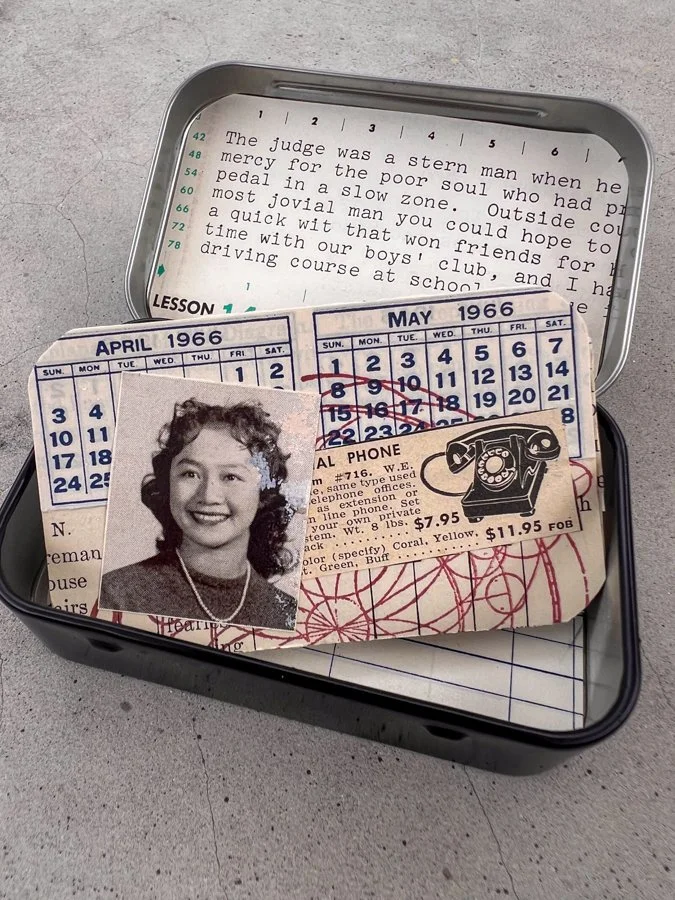 1 | 2 | 3 | 4 | 5 | 6 |
42 The judge was a stern man when he
48 mercy for the poor soul who had pr
54 pedal in a slow zone. Outside cou
60 most jovial man you could hope to
66 a quick wit that won friends for h
72 time with our boys' club, and I ha
78 driving course at school
1
LESSON
APRIL 1966
SUN. MON. TUE. WED. THU. FRI. SAT.
1 2
3 4
10 11
17 18
24 25
MAY 1966
SUN. MON. TUE. WED. THU. FRI. SAT.
1 2 3 4 5 6 7
8 9 10 11 12 13 14
15 16 17 18 19 20 21
22 23 24
AL PHONE
m #716. W.E.
e, same type used
elephone offices.
as extension or
n line phone. Set
your own private
stem. Wt. 8 lbs.
ack $7.95
olor (specify) Coral, Yellow,
t. Green, Buff $11.95 FOB
N.
reman
ouse
airs
ng